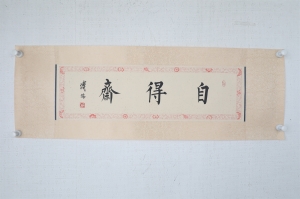 自得齋